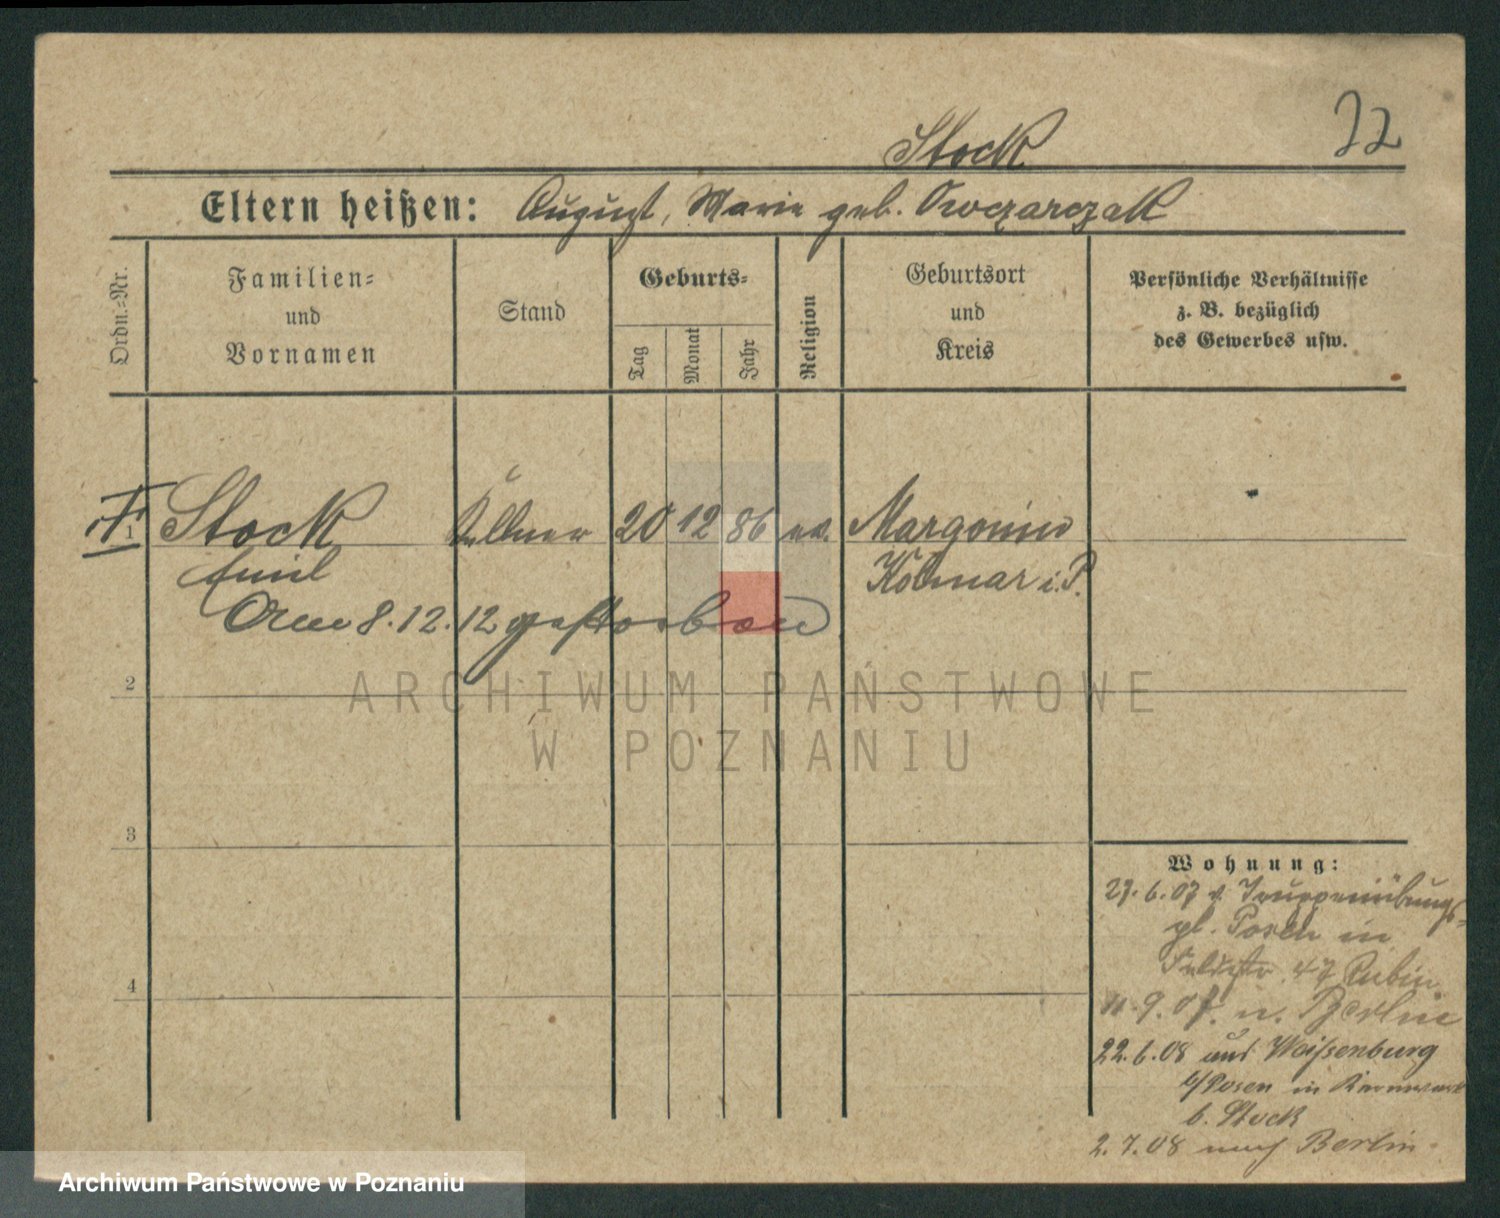 Stock
22
Eltern heißen: August, Marie geb. Owczarczak
Ordn.=Nr.
Familien=
und
Vornamen
Stand
Geburts=
Tag
Monat
Jahr
Religion
Geburtsort
und
Kreis
Persönliche Verhältnisse
z. B. bezüglich
des Gewerbes usw.
1 Stock Kellner 20 12 86 ev. Margonin
Emil Kolmar i. P.
Am 8.12.12 gestorben
2
ARCHIWUM PAŃSTWOWE
W POZNANIU
3
4
Wohnung:
27.6.07 v. Truppenübungs=
pl. Posen in
47 Rubin
11.9.07. n. Berlin
22.6.08 aus Weißenburg
b/Posen in
b. Stock
2.7.08 nach Berlin
Archiwum Państwowe w Poznaniu